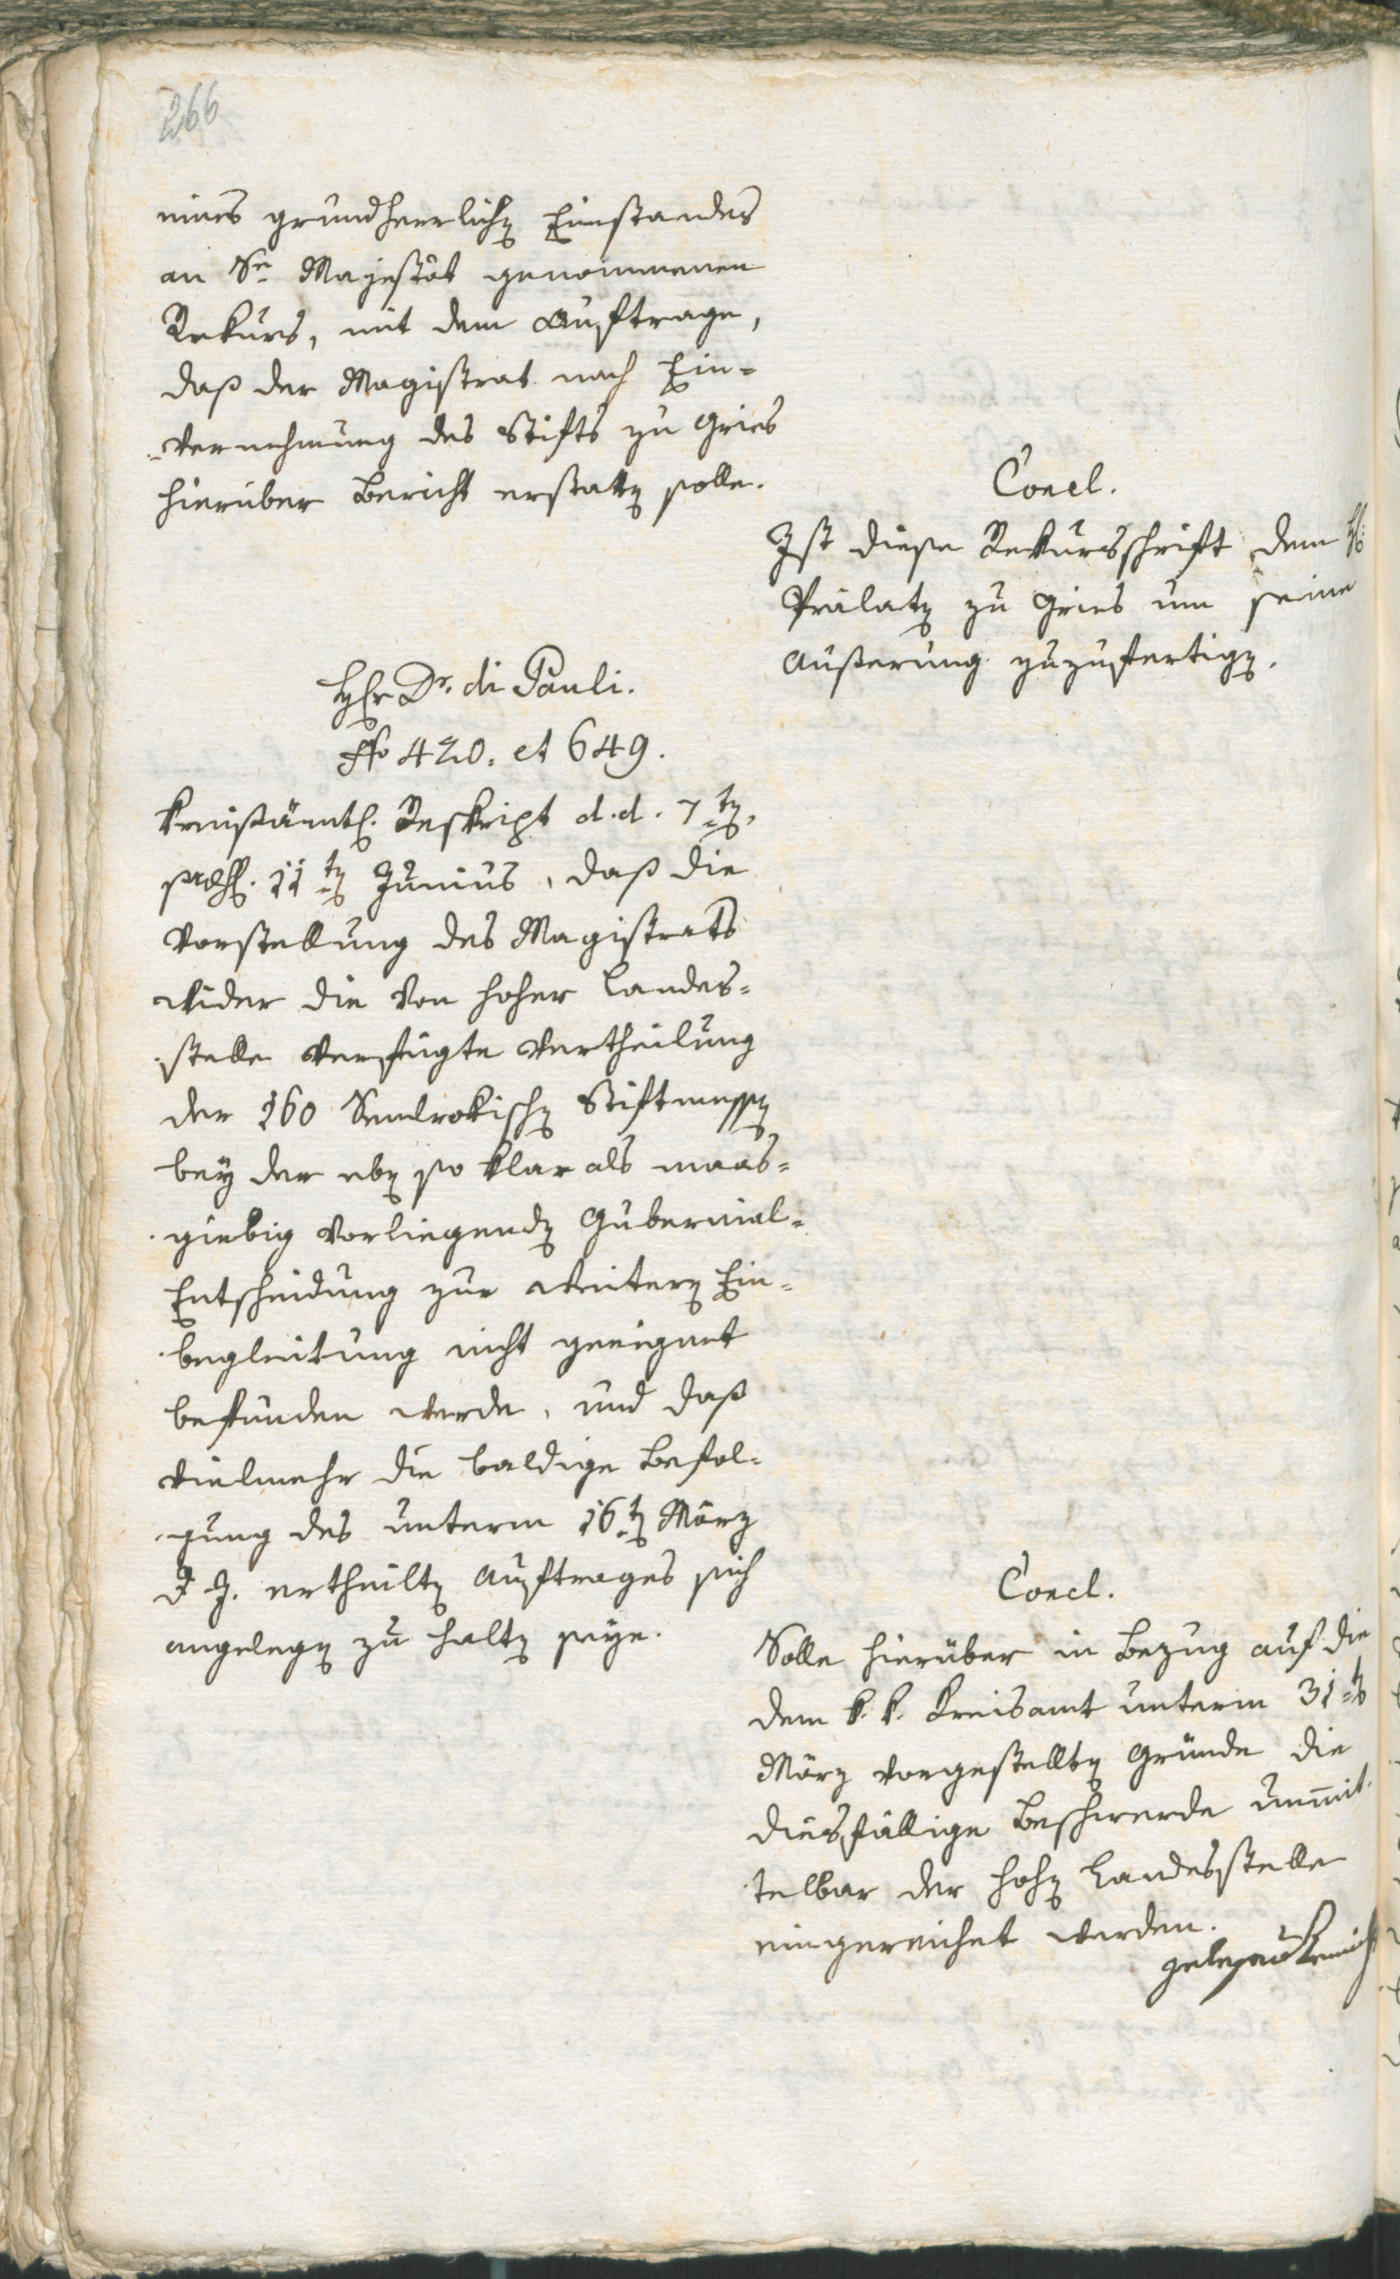 266
eines grundherrlichen Einstandes
an Se Majestät genommenen
Rekurs, mit dem Auftrage,
daß der Magistrat nach Ein=
=vernehmung des Stifts zu Gries
hierüber Bericht erstatten solle.
Concl.
Ist diese Rekursschrift dem H:
Prälaten zu Gries um seine
Äußerung zuzufertigen.
Herr Dr. di Pauli.
No 420. et 649.
Kreisämtl. Reskript d. d. 7ten,
11ten Junius, daß die
Vorstellung des Magistrats
wider die von hoher Landes=
stelle verfügte Vertheilung
der 160 Stiftmessen
bey der eben so klar als maas=
giebig vorliegenden Gubernial=
Entscheidung zur weitern Ein=
begleitung nicht geeignet
befunden werde, und daß
vielmehr die baldige Befol=
gung des unterm 16ten März
d J. ertheilten Auftrages sich
angelegen zu halten seye.
Concl.
Solle hierüber in Bezug auf die
dem k. k. Kreisamt unterm 31ten
März vorgestellten Gründe die
diesfällige Beschwerde unmit=
telbar der hohen Landesstelle
eingereichet werden.